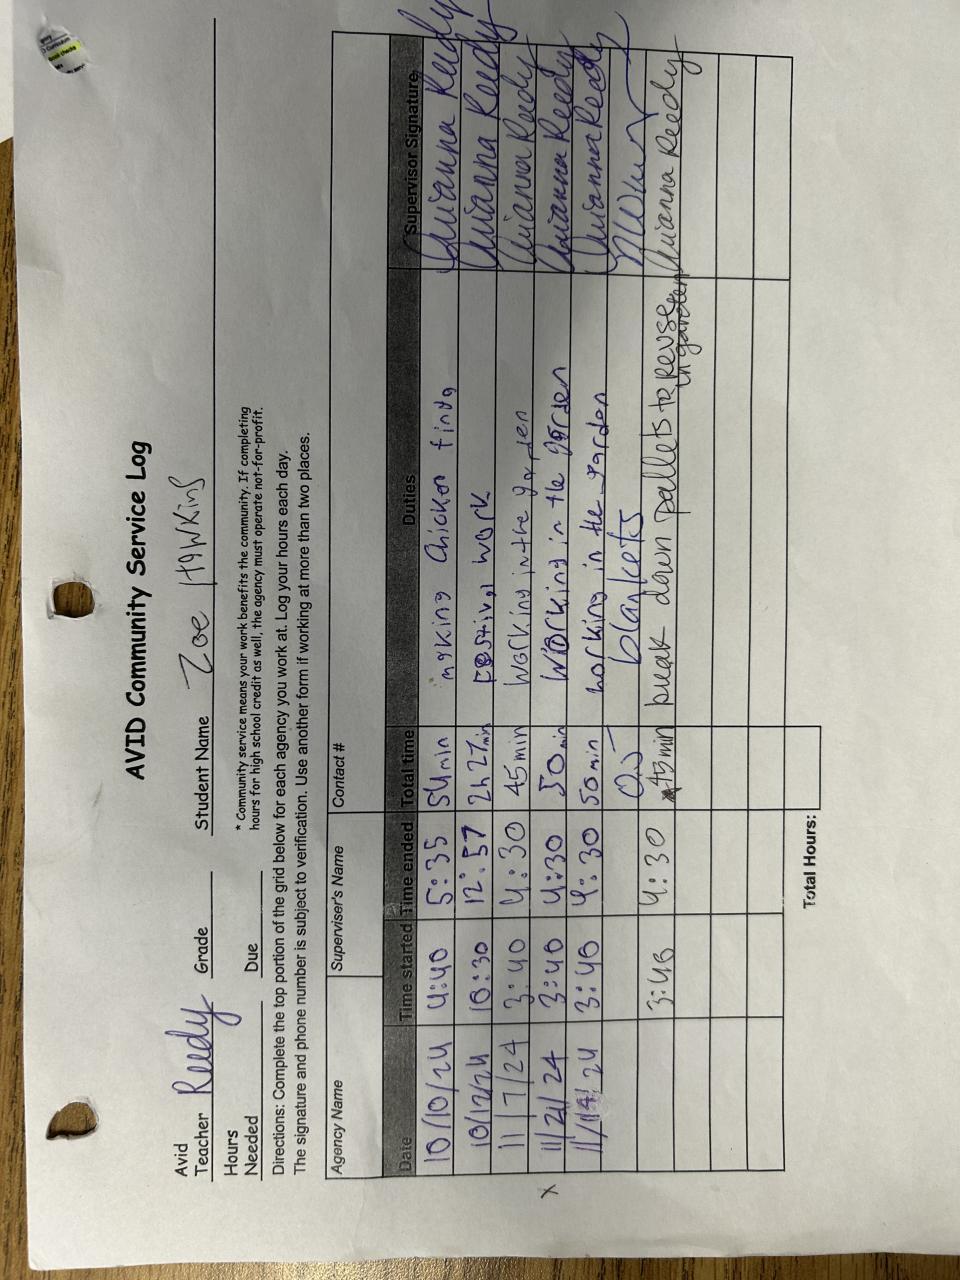 AVID Community Service Log
Avid
Teacher Reedy Grade Student Name Zoe Hawkins
Hours
Needed Due
* Community service means your work benefits the community. If completing
hours for high school credit as well, the agency must operate not-for-profit.
Directions: Complete the top portion of the grid below for each agency you work at. Log your hours each day.
The signature and phone number is subject to verification. Use another form if working at more than two places.
Agency Name Superviser's Name Contact #
Date Time started Time ended Total time Duties Supervisor Signature
10/10/24 4:40 5:35 54min making chicken Auianna Reedy
10/12/24 10:30 12:57 2h 27min Festival work Auianna Reedy
11/7/24 3:40 4:30 45min Working in the garden Auianna Reedy
x 11/21/24 3:40 4:30 50min Working in the garden Auianna Reedy
11/14/24 3:40 4:30 50min working in the garden Auianna Reedy
0.5 blankets
3:45 4:30 45min break down pallets to reuse in garden Auianna Reedy
Total Hours: